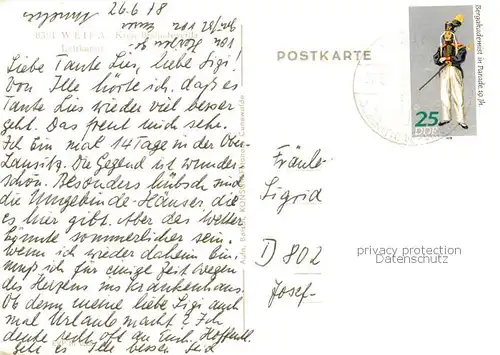 26.6.78
Liebe Tante Lis, liebe Sigi!
Von Ille hörte ich, daß es
Tante Lis wieder viel besser
geht. Das freut mich sehr.
Ich bin mal 14 Tage in der Ober-
Lausitz. Die Gegend ist wunder-
schön. Besonders hübsch sind
die Umgebinde-Häuser die
es hier gibt. Aber das Wetter
könnte sommerlicher sein.
Wenn ich wieder daheim bin,
muß ich für einige Zeit wegen
des Herzens ins Krankenhaus.
Ob denn meine liebe Sigi auch
mal Urlaub macht? Ich
denke recht oft an Euch. Hoffentl.
geht es Ille besser. Seid
POSTKARTE
Bergakademist in Parade 19. Jh.
25
DDR
Fräulein
Sigrid
D 802
Josef-
privacy protection
Datenschutz